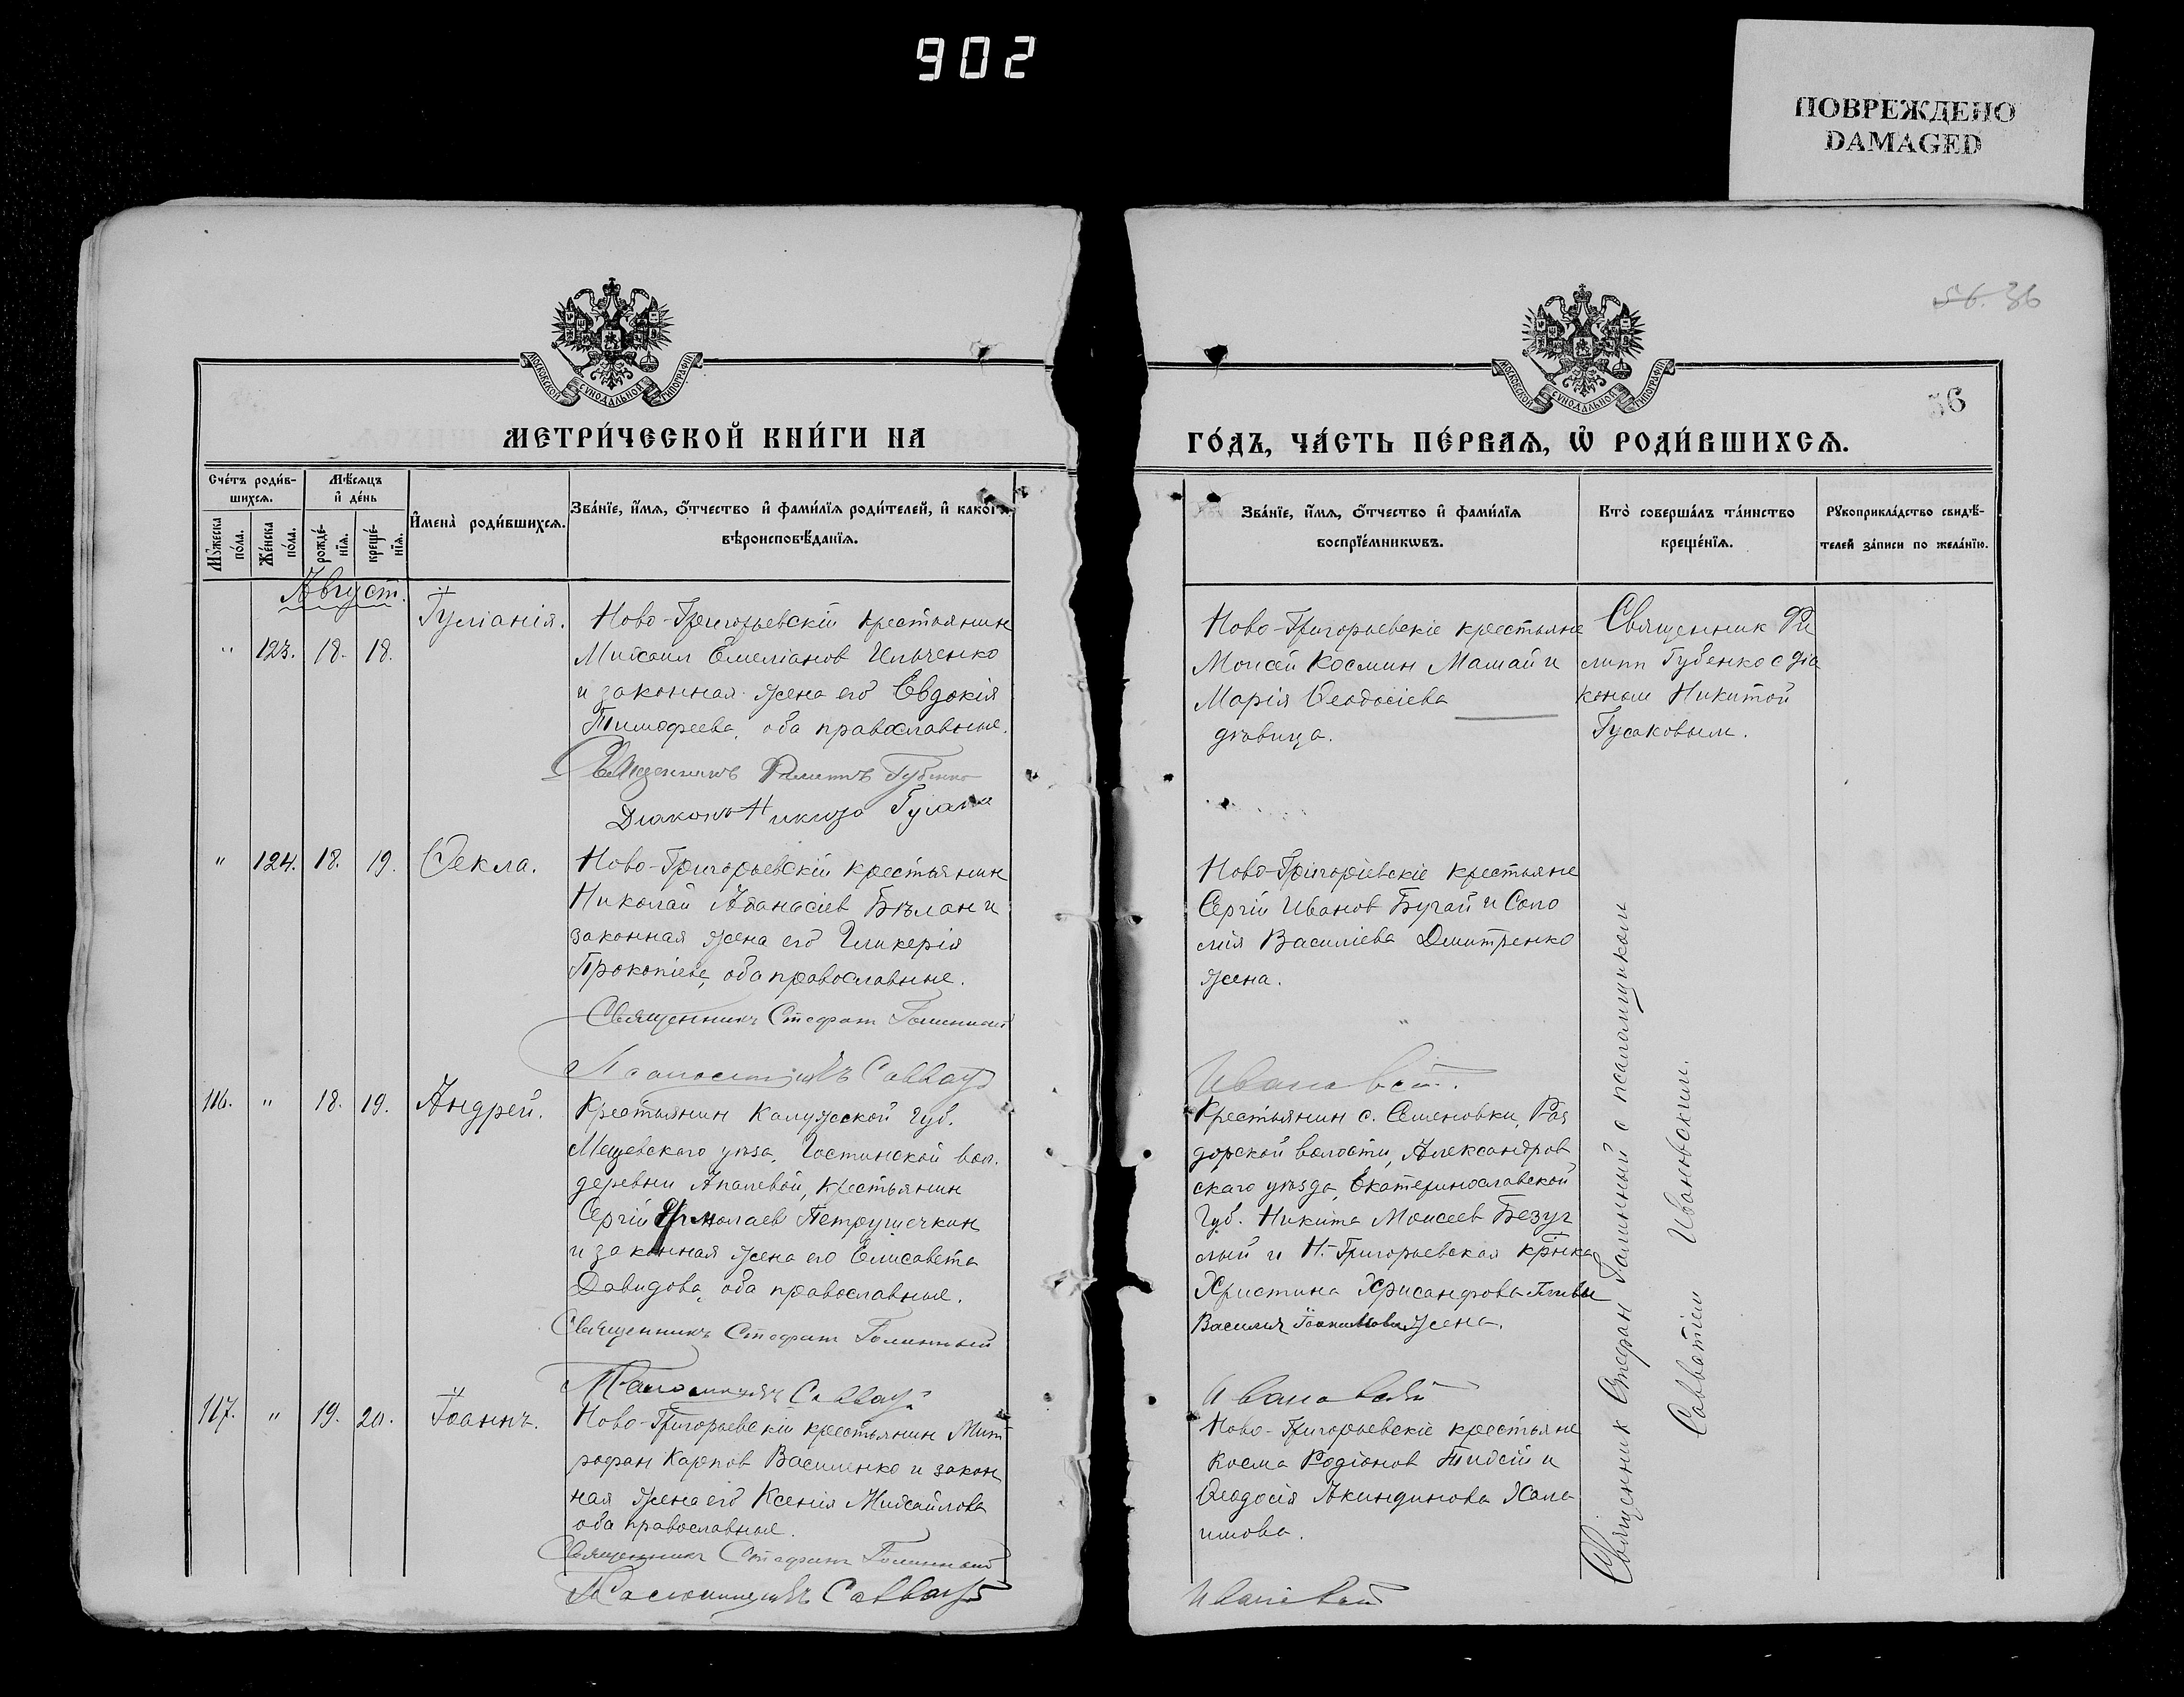 902
ПОВРЕЖДЕНО
DAMAGED
56. 36
56
МОСКОВСКОЙ СѴНОДАЛЬНОЙ ТИПОГРАФІИ
МОСКОВСКОЙ СѴНОДАЛЬНОЙ ТИПОГРАФІИ
МЕТРИ́ЧЕСКОЙ КНИ́ГИ НА
ГО́ДЪ, ЧА́СТЬ ПЕ́РВАѦ, Ѡ҆ РОДИ́ВШИХСѦ.
Сче́тъ роди́в-
шихсѧ.
Мꙋ́жеска
по́ла.
Же́нска
по́ла.
Мѣ́сѧцъ
и҆ де́нь
рожде́-
нїѧ.
креще́-
нїѧ.
И҆мена̀ роди́вшихсѧ.
Зва́нїе, и҆́мѧ, ѻ҆́тчество и҆ фами́лїѧ роди́телей, и҆ како́гѡ
вѣроисповѣ́данїѧ.
Зва́нїе, и҆́мѧ, ѻ҆́тчество и҆ фами́лїѧ
воспрїе́мникѡвъ.
Кто̀ соверша́лъ та́инство
креще́нїѧ.
Рꙋкоприкла́дство свидѣ́-
телей за́писи по жела́нїю.
Август.
" 123. 18. 18.
Іуліанія.
Ново-Григорьевскій крестьянин
Михаил Емеліанов Ильченко
и законная жена его Евдокія
Тимофеева, оба православные.
Священникъ Филиппъ Губенко
Діаконъ Никита Гусаков
Ново-Григорьевскіе крестьяне
Моисей Космин Мамай и
Марія Ѳеодосіева
дѣвица.
Священник Фи
липп Губенко с діа
коном Никитой
Гусаковым.
" 124. 18. 19.
Ѳекла.
Ново-Григорьевскій крестьянин
Николай Аѳанасіев Бѣлан и
законная жена его Гликерія
Прокопіева, оба православные.
Священникъ Стефан Голинный
Псаломщикъ Савватій
Ново-Григоріевскіе крестьяне
Сергій Иванов Бугай и Соло
мія Василіева Дмитренко
жена.
Ивановскій.
116. " 18. 19.
Андрей.
Крестьянин Калужской губ.
Мещевского уѣзда, Гостинской вол.
деревни Апалевой, крестьянин
Сергій Ермолаев Петрушечкин
и законная жена его Елисавета
Давидова, оба православные.
Священникъ Стефан Голинный
Псаломщикъ Савватій
Крестьянин с. Семеновки, Раз
дорской волости, Александров
скаго уѣзда, Екатеринославской
Губ. Никита Моисеев Безуг
лый и Н.-Григорьевская кр-нка
Христина Хрисанфова
Василія Іоакимова жена.
Ивановскій
117. " 19. 20.
Іоаннъ.
Ново-Григорьевскій крестьянин Мит
рофан Карпов Василенко и закон
ная жена его Ксенія Михайлова
оба православные.
Священникъ Стефан Голинный
Псаломщикъ Савватій
Ново-Григорьевскіе крестьяне
Косма Родіонов Тихій и
Ѳеодосія Акиндинова Хала
имова.
Ивановскій
Священник Стефан Голинный с псаломщиком
Савватіем Ивановским.